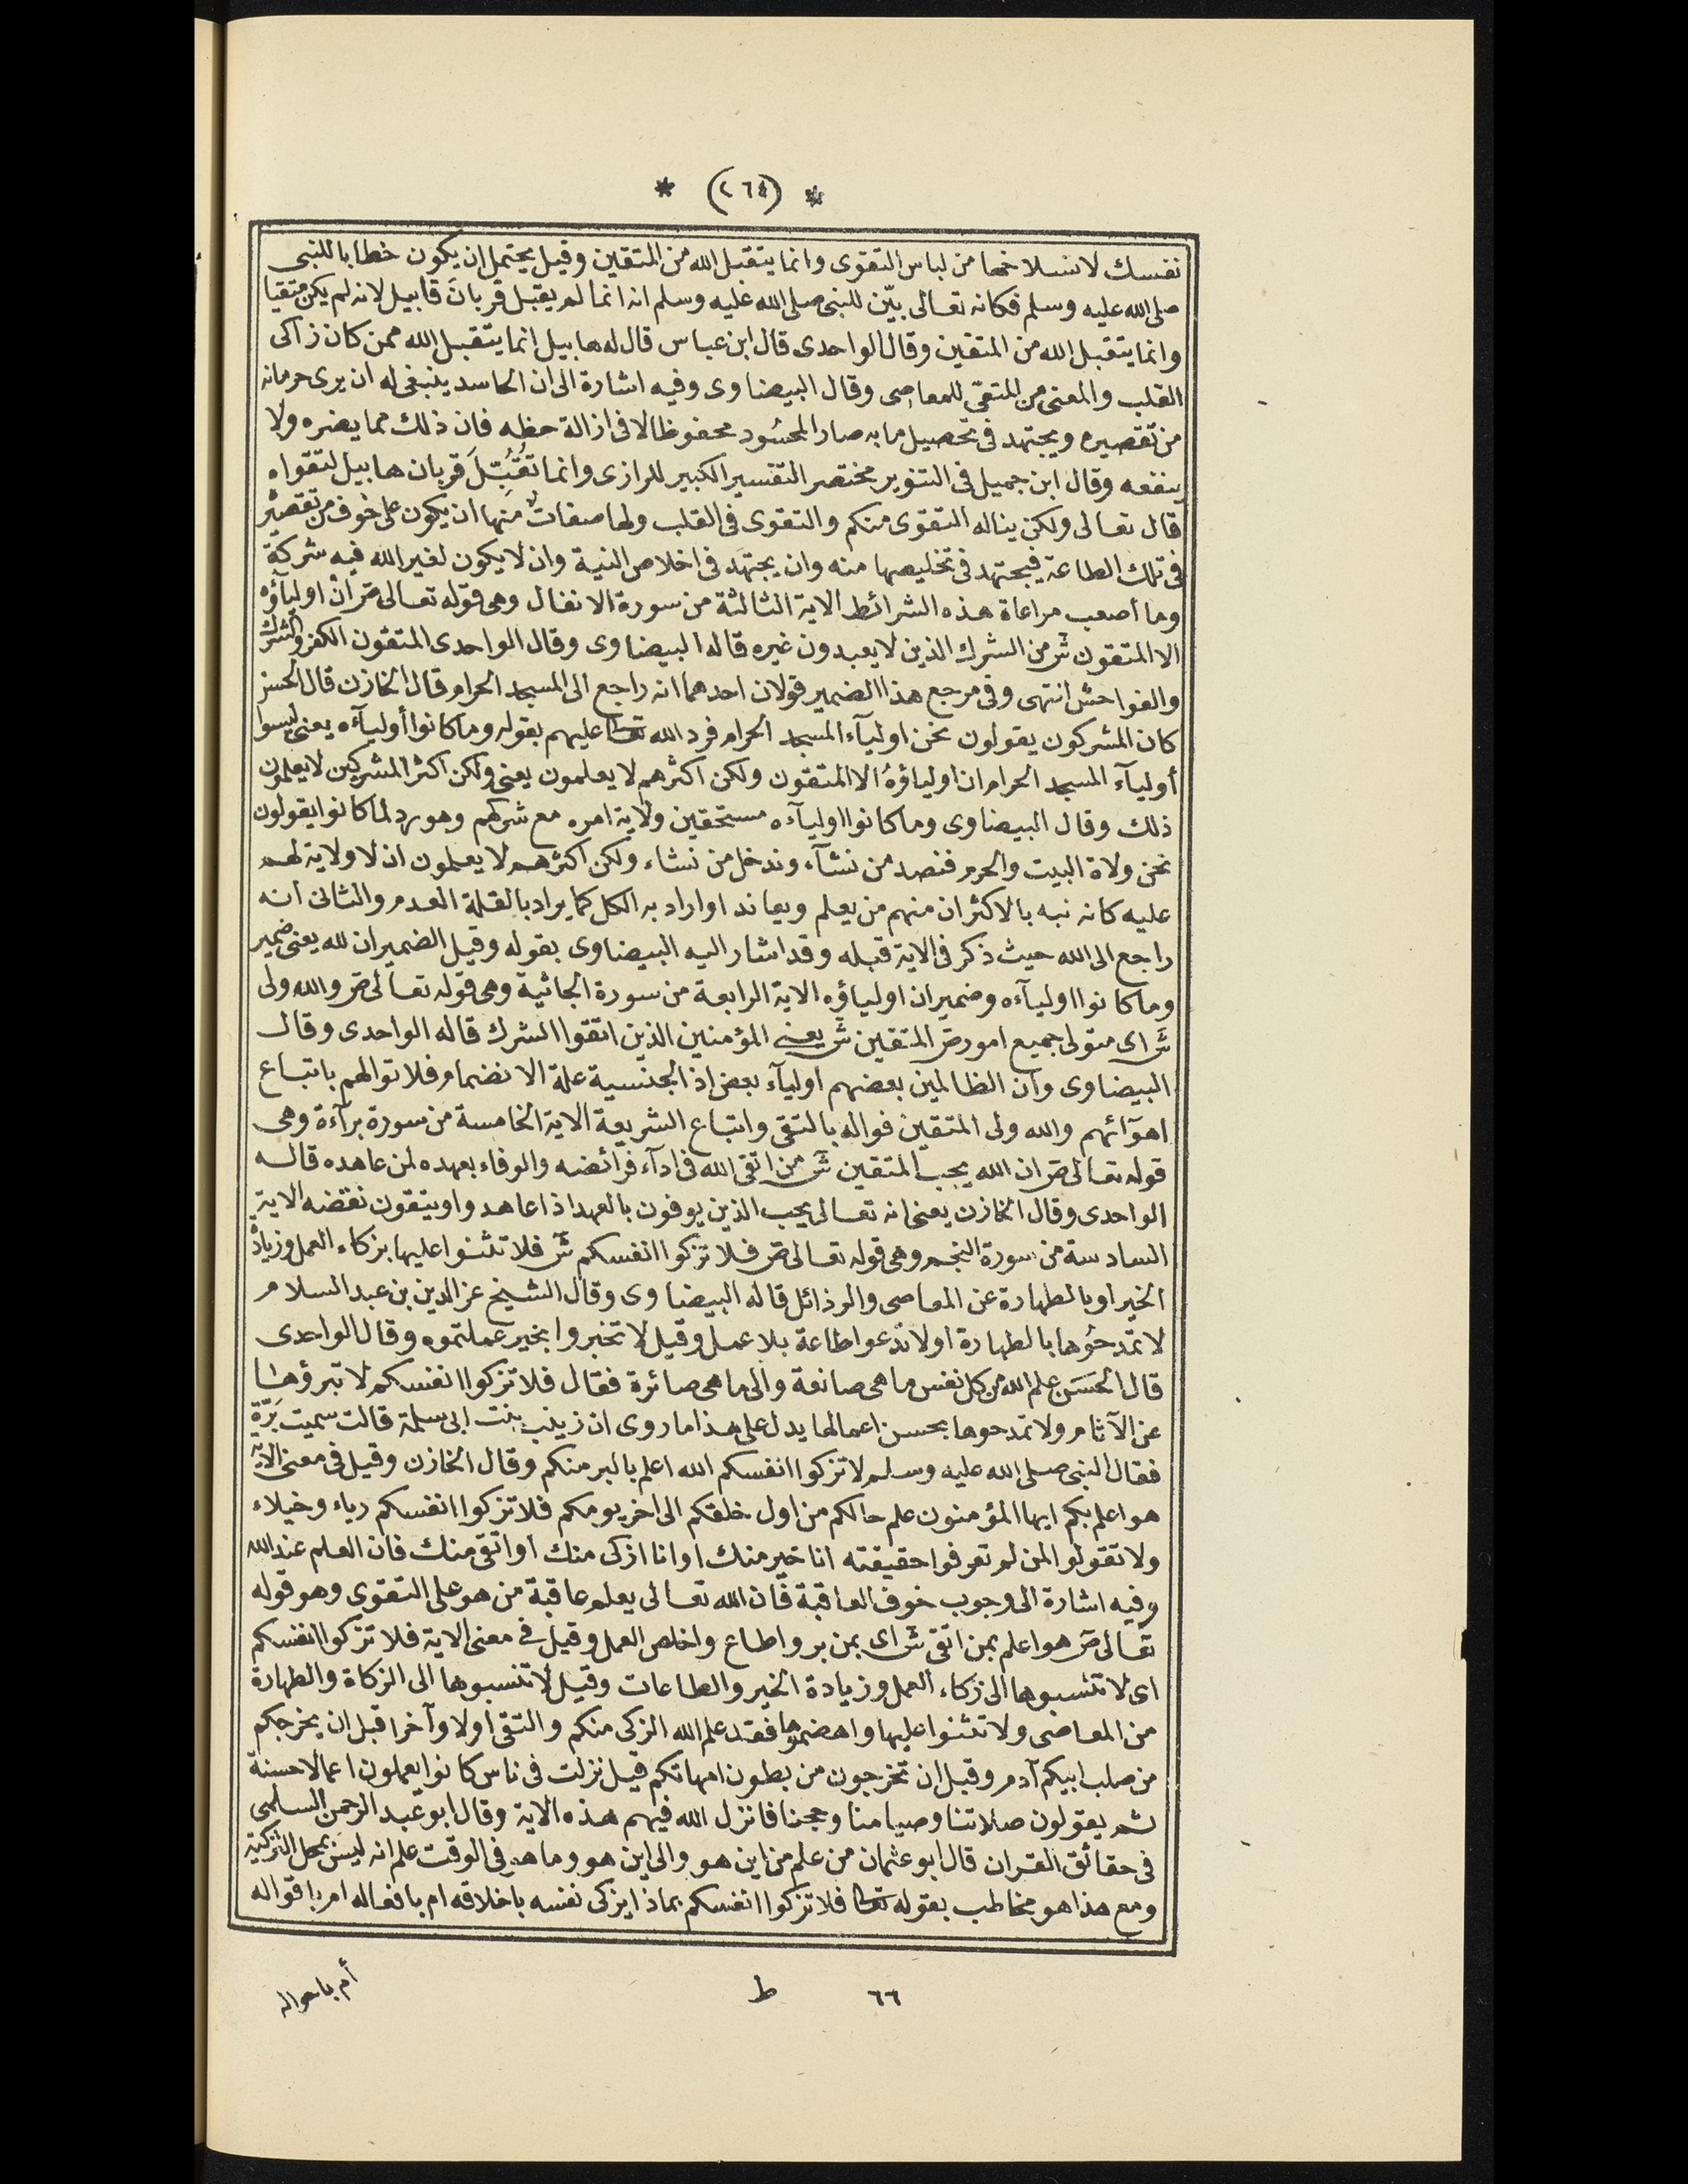 * (٢٦٤) *
نفسك لانسلاخها من لباس التقوى وانما يتقبل الله من المتقين وقيل يحتمل ان يكون خطابا للنبى
صلى الله عليه وسلم فكانه تعالى بيّن للنبى صلى الله عليه وسلم انه انما لم يقبل قربانَ قابيل لانه لم يكن متقيا
وانما يتقبل الله من المتقين وقال الواحدى قال ابن عباس قال له هابيل انما يتقبل الله ممن كان زاكى
القلب والمعنى من المتقى للمعاصى وقال البيضاوى وفيه اشارة الى ان الحاسد ينبغى له ان يرى حرمانه
من تقصيره ويجتهد فى تحصيل ما به صار المحسُود محفوظا لا فى ازالة حظه فان ذلك مما يضره ولا
ينفعه وقال ابن جميل فى التنوير مختصر التفسير الكبير للرازى وانما تُقُبِّلَ قربان هابيل لتقواه
قال تعالى ولكن يناله التقوى منكم والتقوى فى القلب ولها صفات منها ان يكون على خوف من تقصيره
فى تلك الطاعة فيجتهد فى تخليصها منه وان يجتهد فى اخلاص النية وان لا يكون لغير الله فيه شركة
وما أصعب مراعاة هذه الشرائط الاية الثالثة من سورة الانفال وهى قوله تعالى ص ان اولياؤه
الا المتقون ش من الشرك الذين لا يعبدون غيره قاله البيضاوى وقال الواحدى المتقون الكفر والشرك
والفواحش انتهى وفى مرجع هذا الضمير قولان احدهما انه راجع الى المسجد الحرام قال الخازن قال الحسن
كان المشركون يقولون نحن اوليآء المسجد الحرام فرد الله تعالى عليهم بقوله وما كانوا أوليآءه يعنى ليسوا
أوليآء المسجد الحرام ان اولياؤهُ الا المتقون ولكن اكثرهم لا يعلمون يعنى ولكن اكثر المشركين لا يعلمون
ذلك وقال البيضاوى وما كانوا اوليآءه مستحقين ولاية امره مع شركهم وهو رد لما كانوا يقولون
نحن ولاة البيت والحرم فنصد من نشآء وندخل من نشاء ولكن اكثرهم لا يعلمون ان لا ولاية لهم
عليه كانه نبه بالاكثر ان منهم من يعلم ويعاند او اراد به الكل كما يراد بالقلة العدم والثانى انه
راجع الى الله حيث ذكر فى الاية قبله وقد اشار اليه البيضاوى بقوله وقيل الضميران لله يعنى ضمير
وما كانوا اوليآءه وضمير ان اولياؤه الاية الرابعة من سورة الجاثية وهى قوله تعالى ص والله ولى
ش اى متولى جميع امور ص المتقين ش يعنى المؤمنين الذين اتقوا الشرك قاله الواحدى وقال
البيضاوى وان الظالمين بعضهم اوليآء بعض اذ الجنسية علة الانضمام فلا توالهم باتباع
اهوآئهم والله ولى المتقين فواله بالتقى واتباع الشريعة الاية الخامسة من سورة برآءة وهى
قوله تعالى ص ان الله يحب المتقين ش من اتقى الله فى ادآء فرائضه والوفاء بعهده لمن عاهده قاله
الواحدى وقال الخازن يعنى انه تعالى يحب الذين يوفون بالعهد اذا عاهدوا ويتقون نقضه الاية
السادسة من سورة النجم وهى قوله تعالى ص فلا تزكوا انفسكم ش فلا تثنوا عليها بزكاء العمل وزيادة
الخير او بالطهارة عن المعاصى والرذائل قاله البيضاوى وقال الشيخ عز الدين بن عبد السلام
لا تمدحُوها بالطهارة او لا تدعوا طاعة بلا عمل وقيل لا تخبروا بخير عملتموه وقال الواحدى
قال الحَسَن علم الله من كل نفس ما هى صانعة والى ما هى صائرة فقال فلا تزكوا انفسكم لا تبرؤها
عن الآثام ولا تمدحوها بحسن اعمالها يدل على هذا ما روى ان زينب بنت ابى سلمة قالت سميت بَرّة
فقال النبى صلى الله عليه وسلم لا تزكوا انفسكم الله اعلم بالبر منكم وقال الخازن وقيل فى معنى الاية
هو اعلم بكم ايها المؤمنون علم حالكم من اول خلقكم الى اخر يومكم فلا تزكوا انفسكم رياء وخيلاء
ولا تقولوا لمن لم تعرفوا حقيقته انا خير منك او انا ازكى منك او اتقى منك فان العلم عند الله
وفيه اشارة الى وجوب خوف العاقبة فان الله تعالى يعلم عاقبة من هو على التقوى وهو قوله
تعالى ص هو اعلم بمن اتقى ش اى بمن بر واطاع واخلص العمل وقيل فى معنى الاية فلا تزكوا انفسكم
اى لا تنسبوها الى زكاء العمل وزيادة الخير والطاعات وقيل لا تنسبوها الى الزكاة والطهارة
من المعاصى ولا تثنوا عليها واهضموها فقد علم الله الزكى منكم والتقى اولا وآخرا قبل ان يخرجكم
من صلب ابيكم آدم وقبل ان تخرجون من بطون امهاتكم قيل نزلت فى ناس كانوا يعملون اعمالا حسنة
ثم يقولون صلاتنا وصيامنا وحجنا فانزل الله فيهم هذه الاية وقال ابو عبد الرحمن السلمى
فى حقائق القران قال ابو عثمان من علم من اين هو والى اين هو وما هو فى الوقت علم انه ليس بمحل التزكية
ومع هذا هو مخاطب بقوله تعالى فلا تزكوا انفسكم بماذا يزكى نفسه باخلاقه ام بافعاله ام باقواله
أم باحواله
٦٦ ط